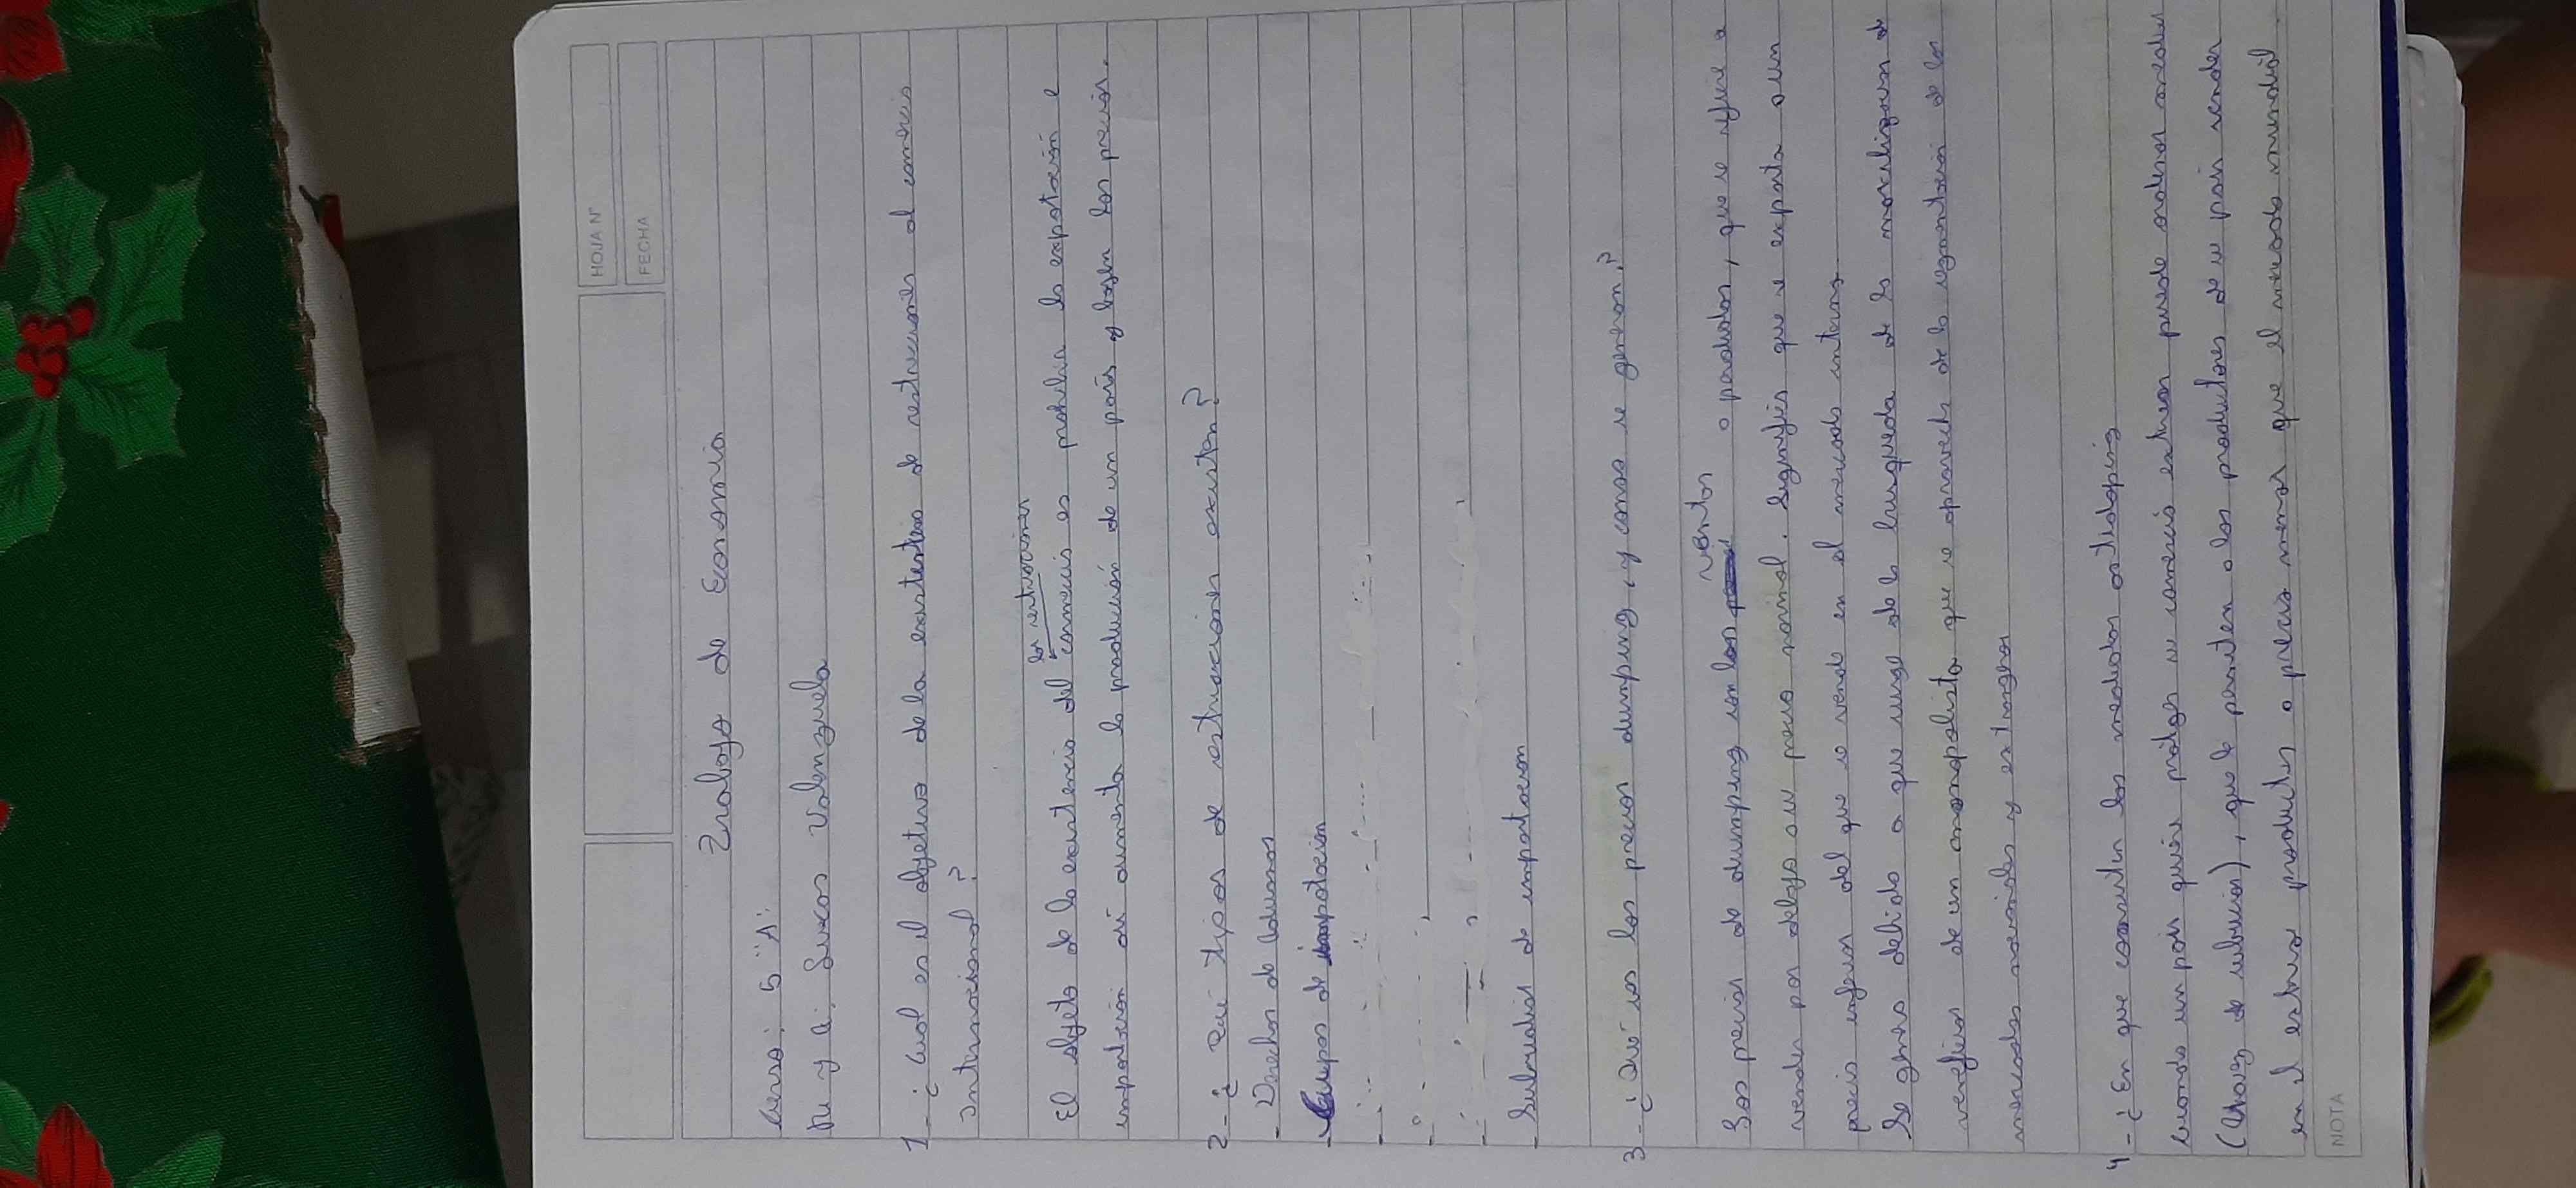 HOJA N°
FECHA
Trabajo de Economia
Curso: 5 "A"
N y A: Lucas Valenzuela
1 - ¿Cual es el objetivo de la existentes de restricciones al comercio
internacional?
las restricciones
El objeto de la existencia del comercio es prohibir la expotación e
importación así aumenta la producción de un país y bajen los precios.
2 - ¿Qué tipos de restricciones existen?
- Derechos de aduanas
- Cupos de impotacion
- Subsidios de importacion
3 - ¿Qué son los precios dumping, y como se generan?
ventas
Los precios de dumping son los o productos, que se refiere a
vender por debajo a su precio nominal. Significa que se exporta a un
precio inferior del que se vende en el mercado interno
Se genera debido a que surge de la busqueda de la maximizacion de
beneficios de un monopolista que se aprovecha de la segmentacion de los
mercados nacionales y extranjeros
4 - ¿En que consisten las medidas antidoping
cuando un país quiere proteger su comercio exterior puede ordenar medidas
de subsidios), que le permiten a los productores de su país vender
en el extranjero productos a precio menor que el mercado mundial
NOTA